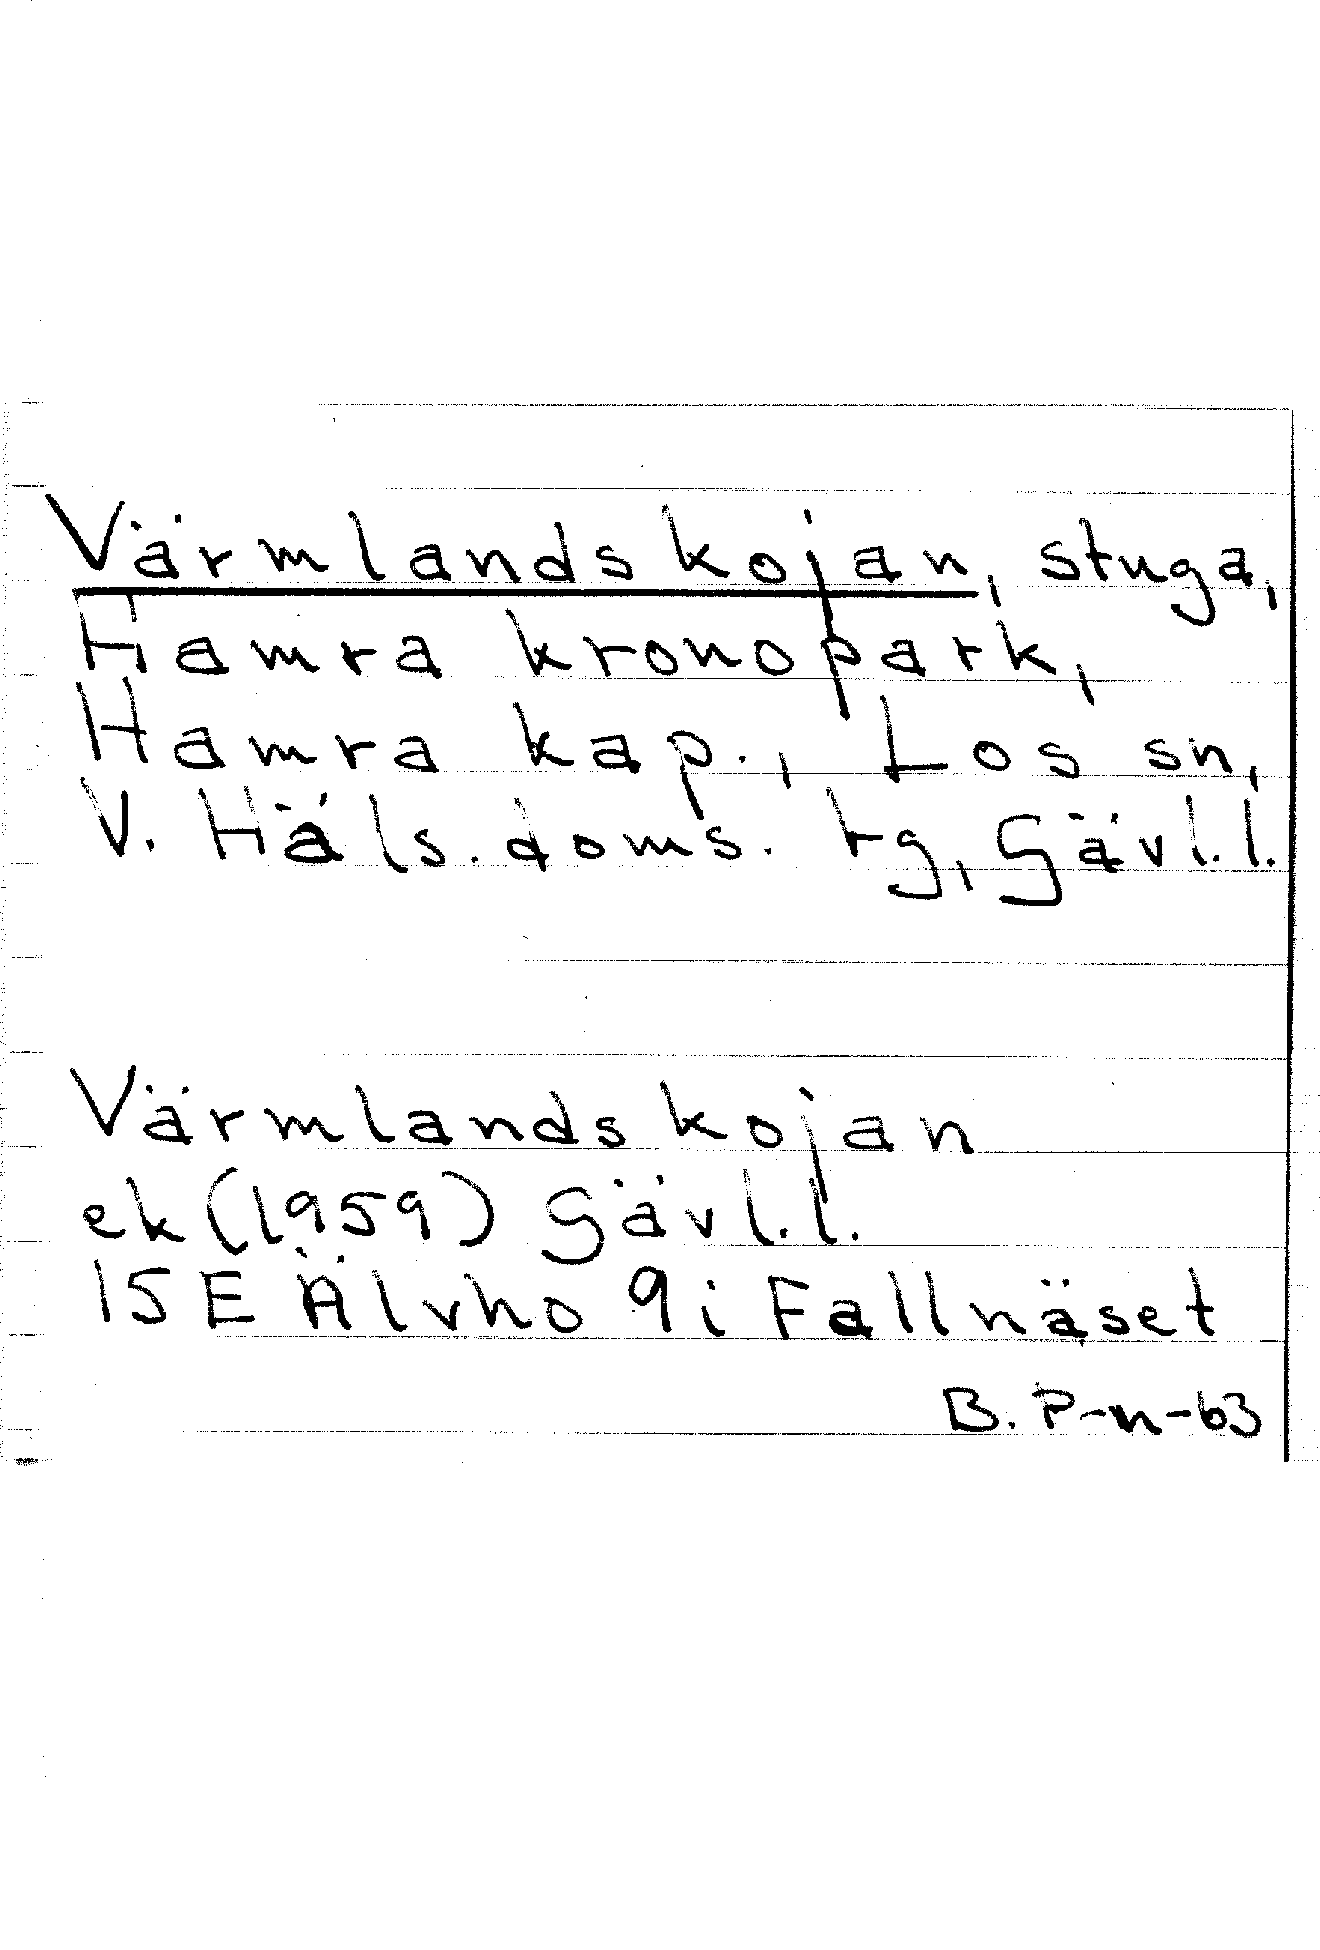 Värmlandskojan, stuga,
Hamra kronopark,
Hamra kap., Los sn,
V. Häls. doms. tg, Gävl.l.
Värmlandskojan
ek (1959) Gävl.l.
15E Älvho 9i Fallnäset
B. P-n-63